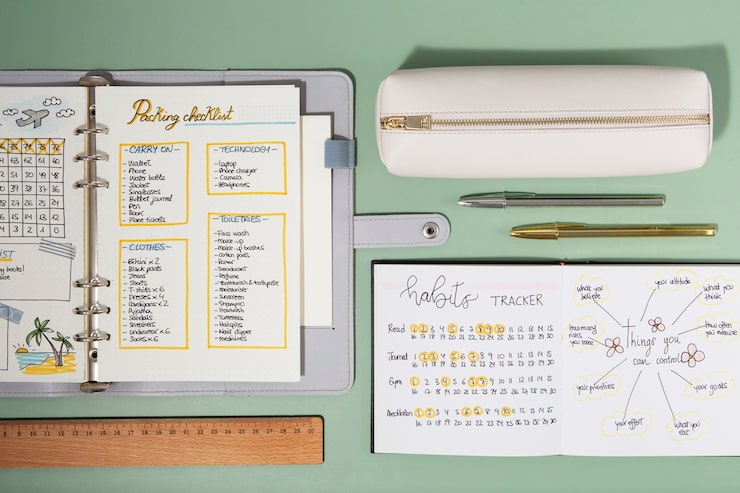 Packing checklist
- CARRY ON -
- Wallet
- Phone
- Water bottle
- Jacket
- Sunglasses
- Bullet journal
- Pen
- Book
- Plane tickets
- CLOTHES -
- Bikini x 2
- Black pants
- Jeans
- Shorts
- T-shirts x 6
- Dresses x 4
- Cardigans x 2
- Pyjama
- Sandals
- Sneakers
- Underwear x 6
- Socks x 6
- TECHNOLOGY -
- Laptop
- Phone charger
- Camera
- Headphones
- TOILETRIES -
- Face wash
- Make-up
- Make-up brushes
- Cotton pads
- Razor
- Deodorant
- Perfume
- Toothbrush & toothpaste
- Moisturiser
- Sunscreen
- Shampoo
- Hairbrush
- Tweezers
- Hairpins
- Nail clippers
- Medicines
habits TRACKER
Read 1 2 3 4 5 6 7 8 9 10 11 12 13 14 15
16 17 18 19 20 21 22 23 24 25 26 27 28 29 30
Journal 1 2 3 4 5 6 7 8 9 10 11 12 13 14 15
16 17 18 19 20 21 22 23 24 25 26 27 28 29 30
Gym 1 2 3 4 5 6 7 8 9 10 11 12 13 14 15
16 17 18 19 20 21 22 23 24 25 26 27 28 29 30
Meditation 1 2 3 4 5 6 7 8 9 10 11 12 13 14 15
16 17 18 19 20 21 22 23 24 25 26 27 28 29 30
Things you
can control
what you
believe
your attitude
what you
think
How many
risks
you take
How often
you exercise
your priorities
your goals
your effort
what you
eat
8 9 10 11 12 13 14 15 16 17 18 19 20 21 22 23 24 25 26 27 28 29 30